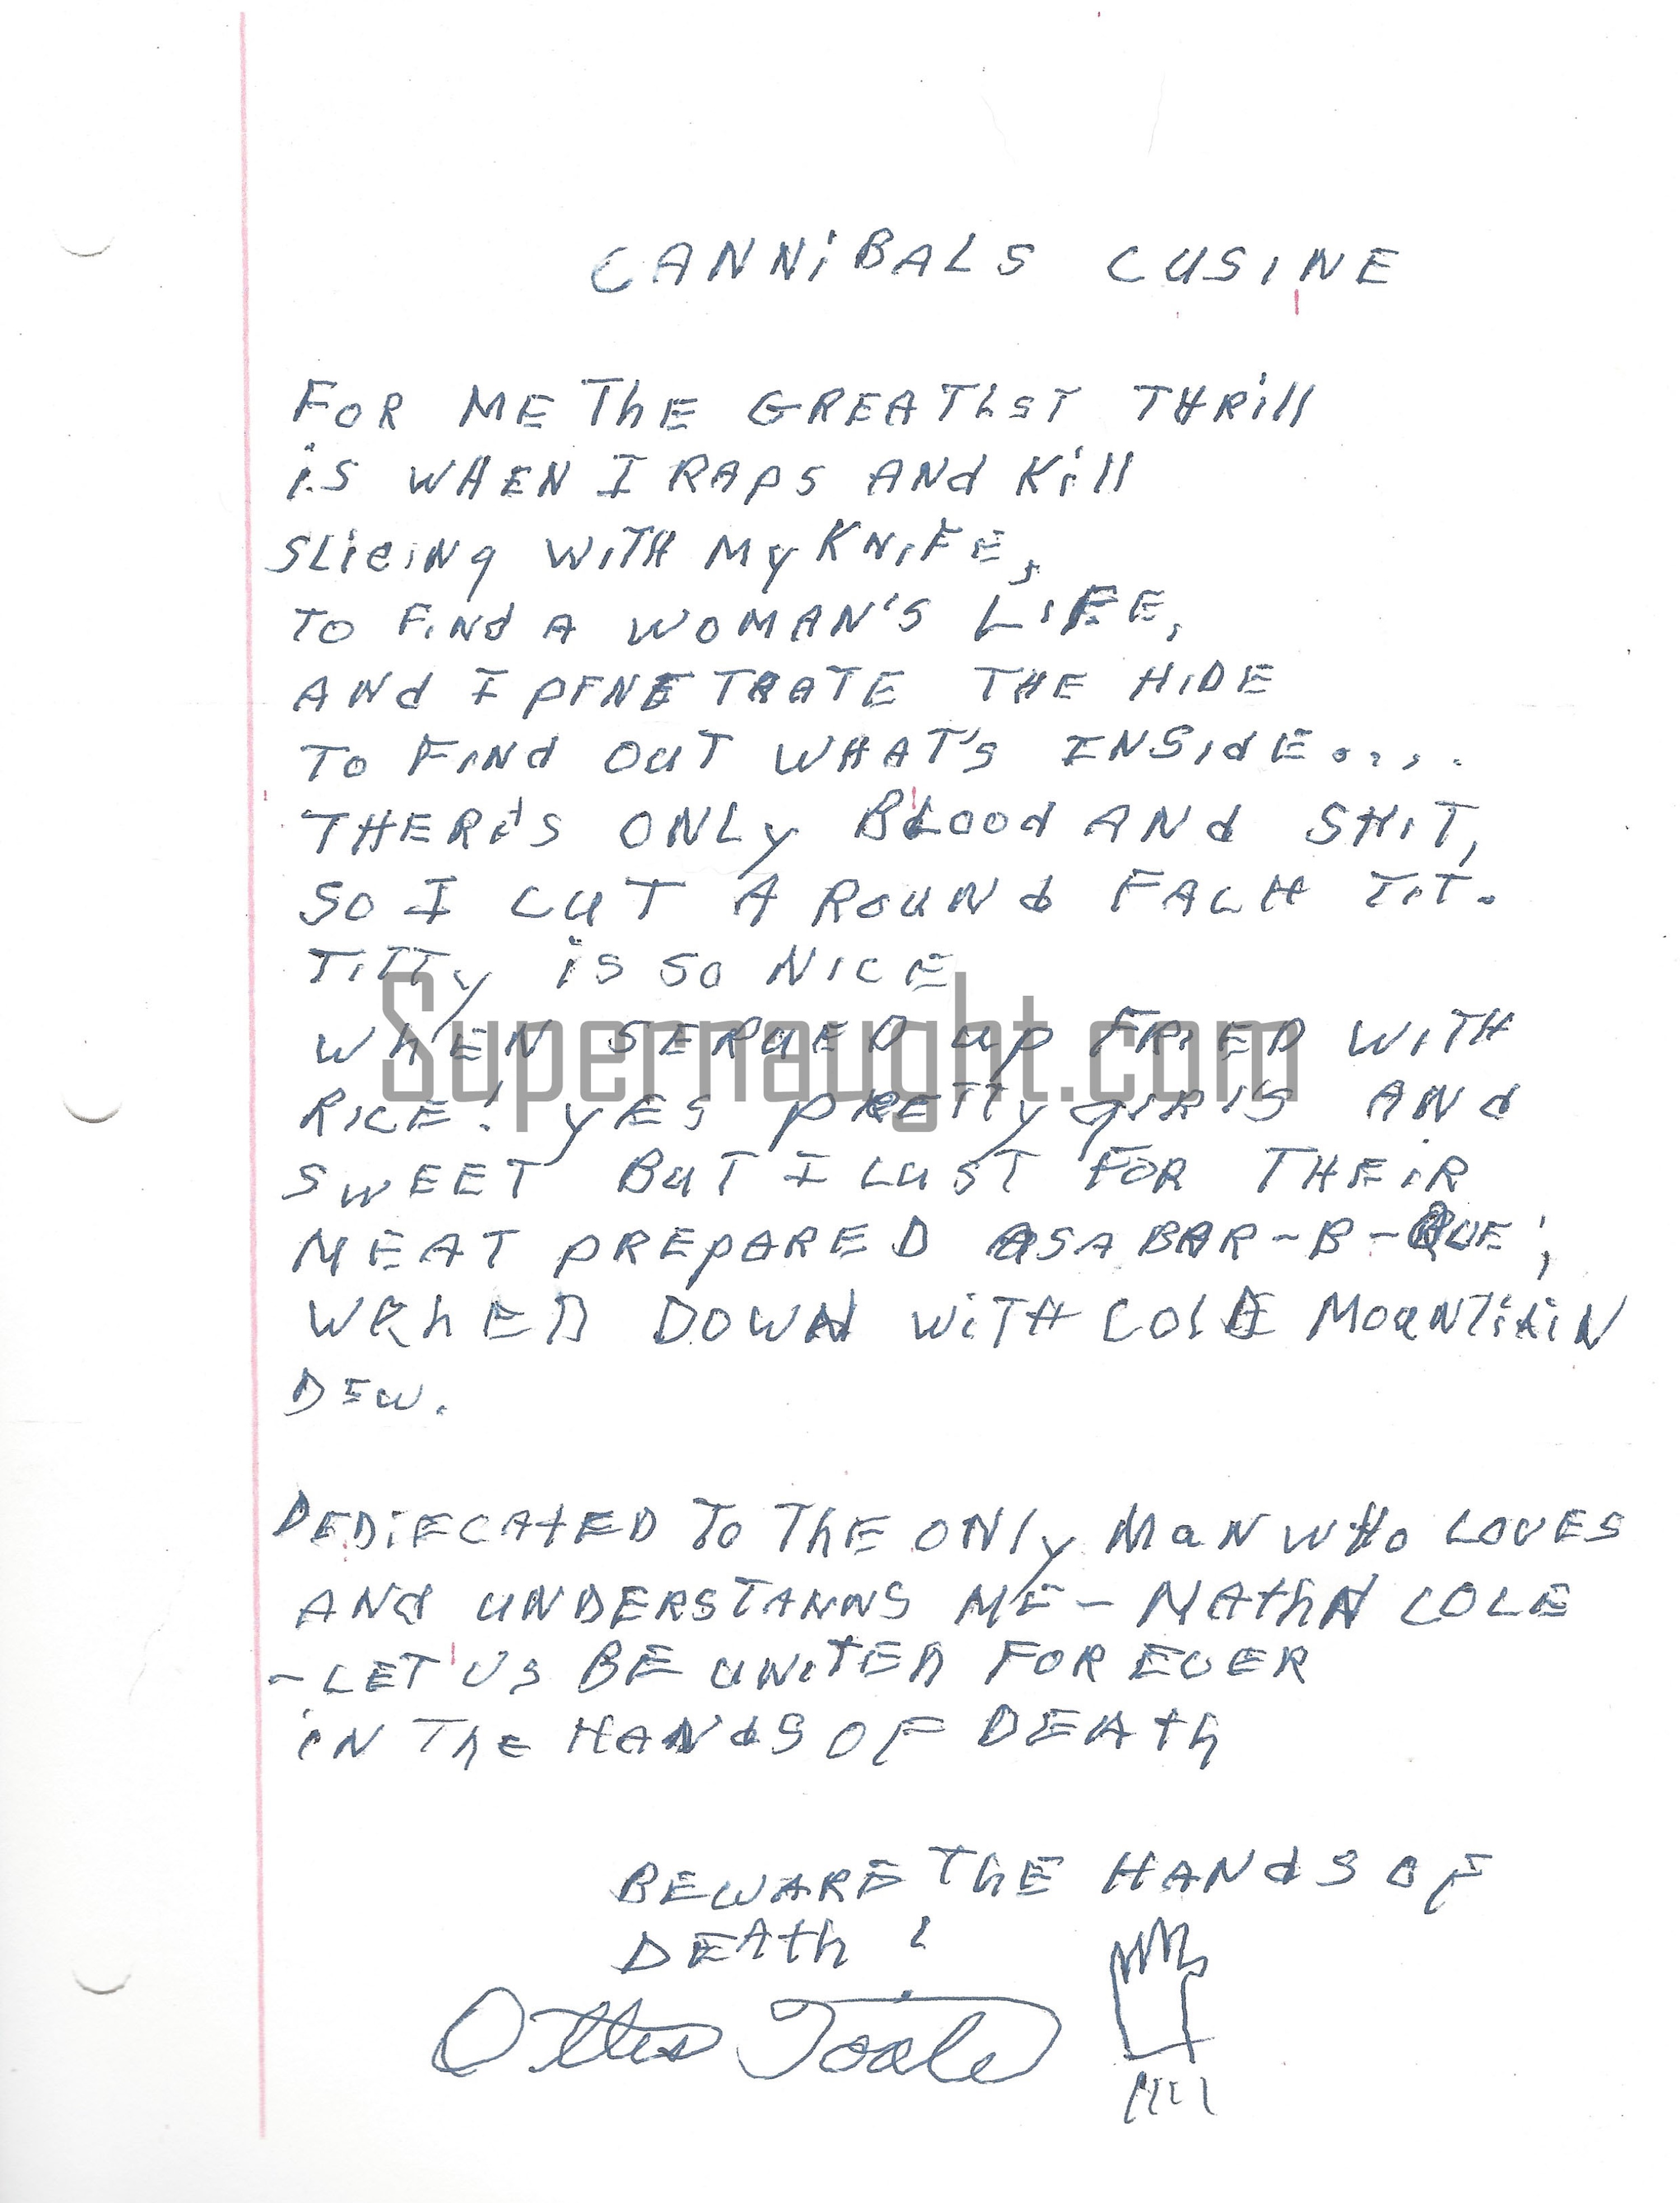 CANNiBALS CUSINE
FOR ME ThE GREATEST THRill
iS WHEN I RAPS ANd Kill
SLICING WITH My KNIFE,
TO FINd A WOMAN'S LIFE,
ANd I PENETRATE THE HIDE
TO FINd OUT WHAT'S INSIdE....
THERE'S ONLy BLOOd ANd SHIT,
SO I CUT AROUNd EACH TIT.
TITTy iS SO NICE
WhEN SERVED UP FRIED WITH
RICE! yES PRETTy GIRLS ANd
SWEET BUT I LUST FOR THEIR
MEAT PREPARED AS A BAR-B-QUE;
DOWN WITH COLD MOUNTIAIN
DEW.
DEDIECATED TO ThE ONLy MAN WHO LOVES
ANd UNDERSTANNS ME - NAThN COLE
- LET US BE UNITED FOREVER
IN ThE HANdS OF DEATh
BEWARE ThE HANdS OF
DEATh!
Ottis Toole
Supernaught.com